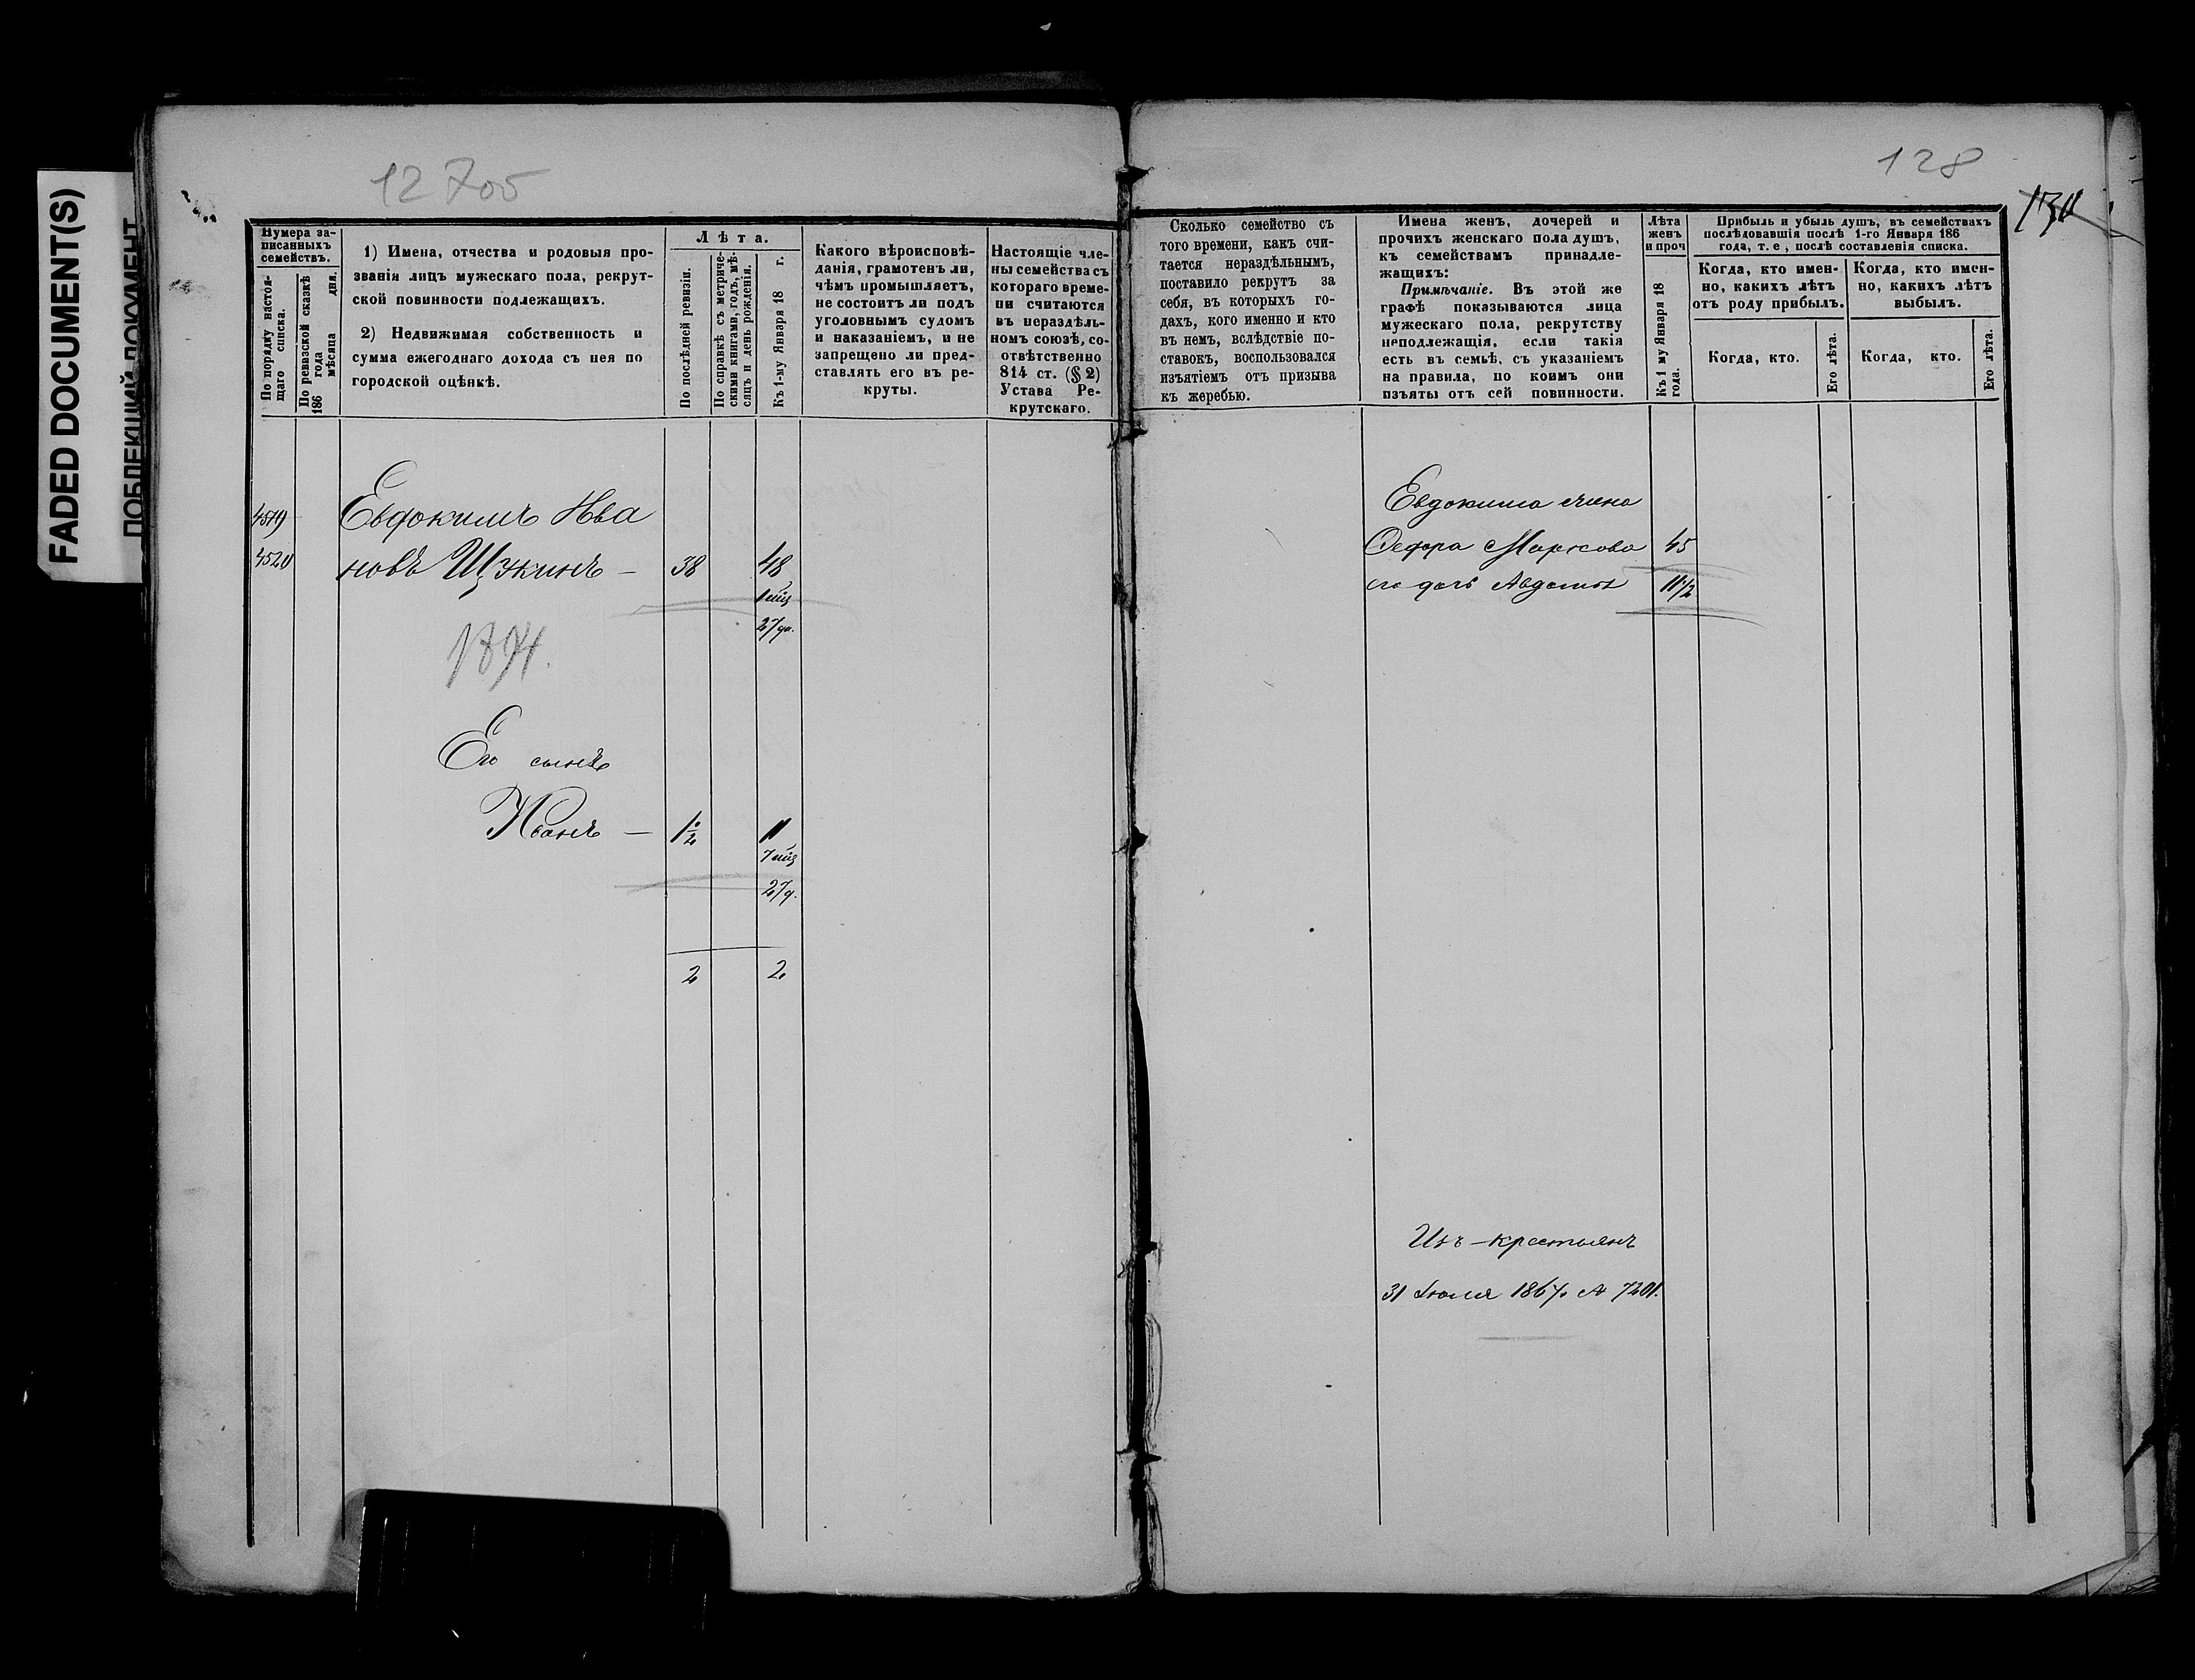 FADED DOCUMENT(S)
ПОБЛЕКШИЙ ДОКУМЕНТ
12700
Нумера за-
писанныхъ
семействъ.
По порядку настоя-
щаго списка.
По ревизской сказкѣ
186 года
мѣсяца дня.
1) Имена, отчества и родовыя про-
званія лицъ мужескаго пола, рекрут-
ской повинности подлежащихъ.
2) Недвижимая собственность и
сумма ежегоднаго дохода съ нея по
городской оцѣнкѣ.
Лѣта.
По послѣдней ревизіи.
По справкѣ съ метриче-
скими книгами, годъ, мѣ-
сяцъ и день рожденія.
Къ 1-му Января 18 г.
Какого вѣроисповѣ-
данія, грамотенъ ли,
чѣмъ промышляетъ,
не состоитъ ли подъ
уголовнымъ судомъ
и наказаніемъ, и не
запрещено ли пред-
ставлять его въ ре-
круты.
Настоящіе чле-
ны семейства съ
котораго време-
ни считаются
въ нераздѣль-
номъ союзѣ, со-
отвѣтственно
814 ст. (§ 2)
Устава Ре-
крутскаго.
4519
Евдокимъ Ива
4520 новъ Щукинъ — 38 48
1 мѣц
27 дн.
1894.
Его сынъ
Иванъ — 1½ 11
7 мѣц
27 д.
2 2
128
130
Сколько семейство съ
того времени, какъ счи-
тается нераздѣльнымъ,
поставило рекрутъ за
себя, въ которыхъ го-
дахъ, кого именно и кто
въ немъ, вслѣдствіе по-
ставокъ, воспользовался
изъятіемъ отъ призыва
къ жеребью.
Имена женъ, дочерей и
прочихъ женскаго пола душъ,
къ семействамъ принадле-
жащихъ:
Примѣчаніе. Въ этой же
графѣ показываются лица
мужескаго пола, рекрутству
неподлежащія, если такія
есть въ семьѣ, съ указаніемъ
на правила, по коимъ они
изъяты отъ сей повинности.
Лѣта
женъ
и проч
Къ 1 му Января 18
года.
Прибыль и убыль душъ, въ семействахъ
послѣдовавшія послѣ 1-го Января 186
года, т. е, послѣ составленія списка.
Когда, кто имен-
но, какихъ лѣтъ
отъ роду прибылъ.
Когда, кто.
Его лѣта.
Когда, кто имен-
но, какихъ лѣтъ
выбылъ.
Когда, кто.
Его лѣта.
Евдокима жена
Маркова 45
его дочь 11½
Изъ крестьянъ
31 Іюля № 7201.